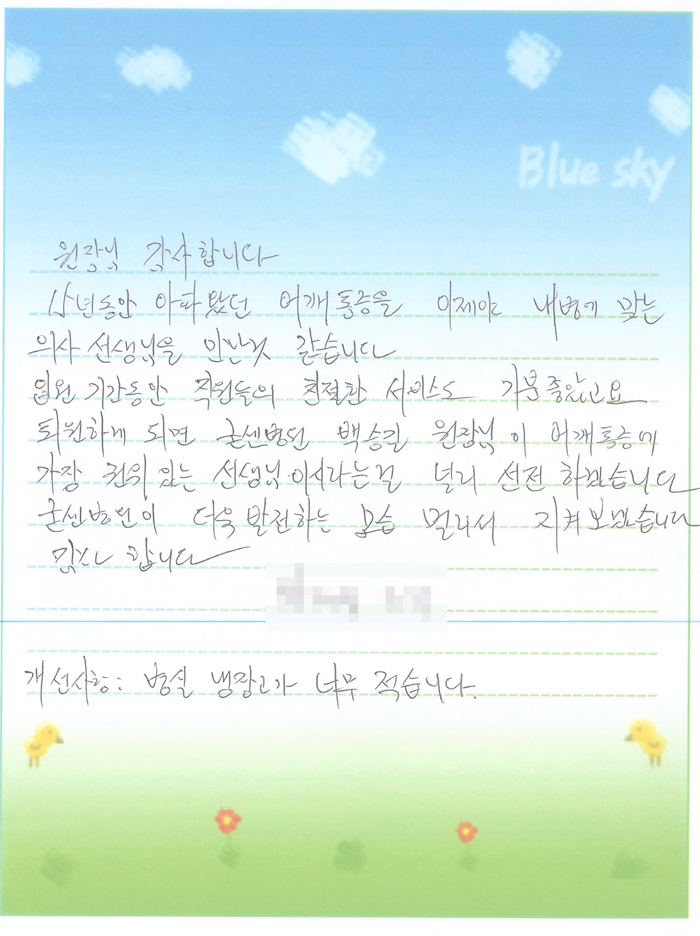 Blue sky
원장님 감사합니다
사년동안 아파왔던 어깨통증을 이제야 내병에 맞는
의사 선생님을 만난것 같습니다
입원 기간동안 직원들의 친절한 서비스도 가분좋았고요
퇴원하게 되면 굳센병원 백승길 원장님이 어깨통증에
가장 권위있는 선생님이시라는걸 널리 선전 하겠습니다
굳센병원이 더욱 발전하는 모습 멀리서 지켜보겠습니다
감사 합니다
개선사항: 병실 냉장고가 너무 적습니다.